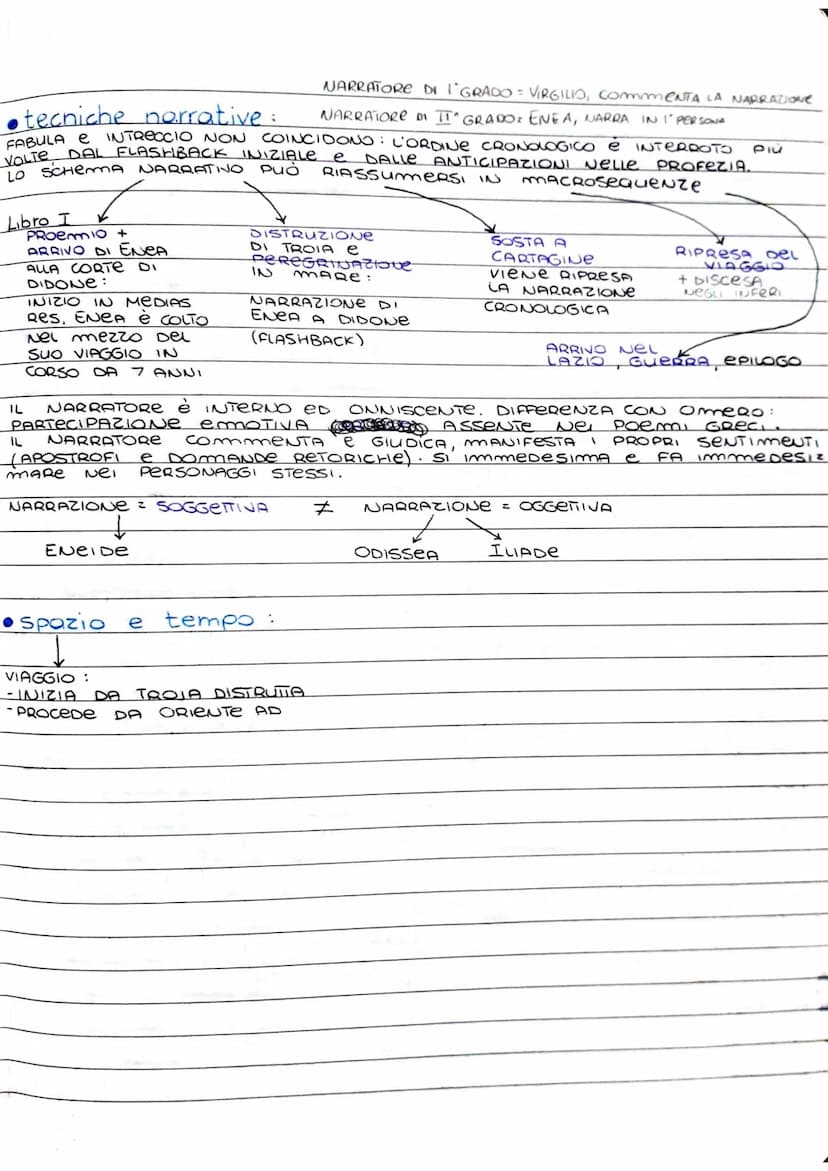 NARRATORE DI 1° GRADO = VIRGILIO, COMMENTA LA NARRAZIONE
• tecniche narrative: NARRATORE DI II° GRADO = ENEA, NARRA IN 1° PERSONA
FABULA E INTRECCIO NON COINCIDONO: L'ORDINE CRONOLOGICO È INTERROTO PIÙ
VOLTE DAL FLASHBACK INIZIALE E DALLE ANTICIPAZIONI NELLE PROFEZIA.
LO SCHEMA NARRATIVO PUÒ RIASSUMERSI IN MACROSEQUENZE
Libro I
PROEMIO +
ARRIVO DI ENEA
ALLA CORTE DI
DIDONE:
INIZIO IN MEDIAS
RES. ENEA È COLTO
NEL MEZZO DEL
SUO VIAGGIO IN
CORSO DA 7 ANNI
DISTRUZIONE
DI TROIA E
PEREGRINAZIONE
IN MARE:
NARRAZIONE DI
ENEA A DIDONE
(FLASHBACK)
SOSTA A
CARTAGINE
VIENE RIPRESA
LA NARRAZIONE
CRONOLOGICA
RIPRESA DEL
VIAGGIO
+ DISCESA
NEGLI INFERI
ARRIVO NEL
LAZIO, GUERRA, EPILOGO
IL NARRATORE È INTERNO ED ONNISCENTE. DIFFERENZA CON OMERO:
PARTECIPAZIONE EMOTIVA ASSENTE NEI POEMI GRECI.
IL NARRATORE COMMENTA E GIUDICA, MANIFESTA I PROPRI SENTIMENTI
(APOSTROFI E DOMANDE RETORICHE). SI IMMEDESIMA E FA IMMEDESI=
MARE NEI PERSONAGGI STESSI.
NARRAZIONE = SOGGETTIVA ≠ NARRAZIONE = OGGETTIVA
ENEIDE ODISSEA ILIADE
• spazio e tempo:
VIAGGIO:
- INIZIA DA TROIA DISTRUTTA
- PROCEDE DA ORIENTE AD